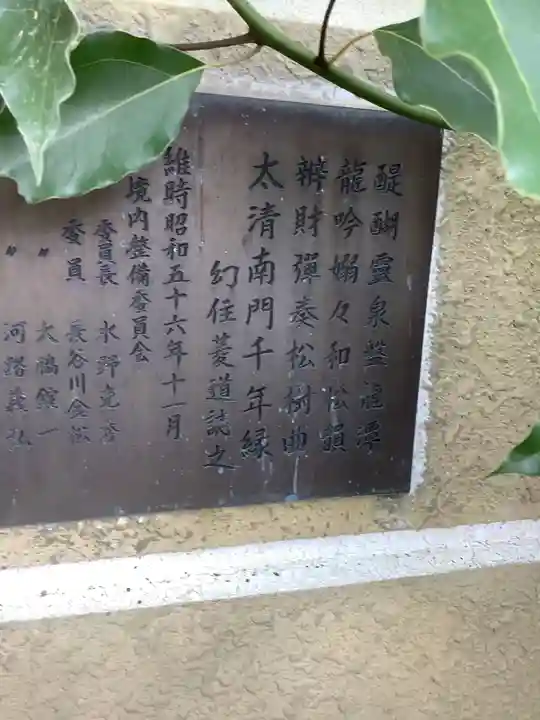 醍醐靈泉盤龍潭
龍吟嫋々和松韻
辨財彈奏松樹曲
太清南門千年緑
幻住菱道誌之
維時昭和五十六年十一月
境内整備委員会
委員長 水野
委員 長谷川金
〃 大鴻 一
〃 河 義